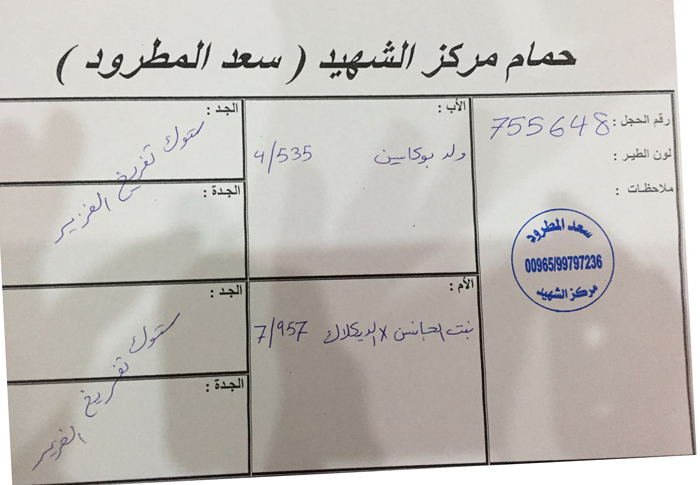 حمام مركز الشهيد ( سعد المطرود )
رقم الحجل : 755648
لون الطير :
ملاحظات :
سعد المطرود
00965/99797236
مركز الشهيد
الأب :
ولد بوكاسين 4/535
الأم :
بنت الجانسن x الديكلاك 7/957
الجد :
ستوك تفريخ الغزير
الجدة :
الجد :
ستوك تفريخ الغزير
الجدة :